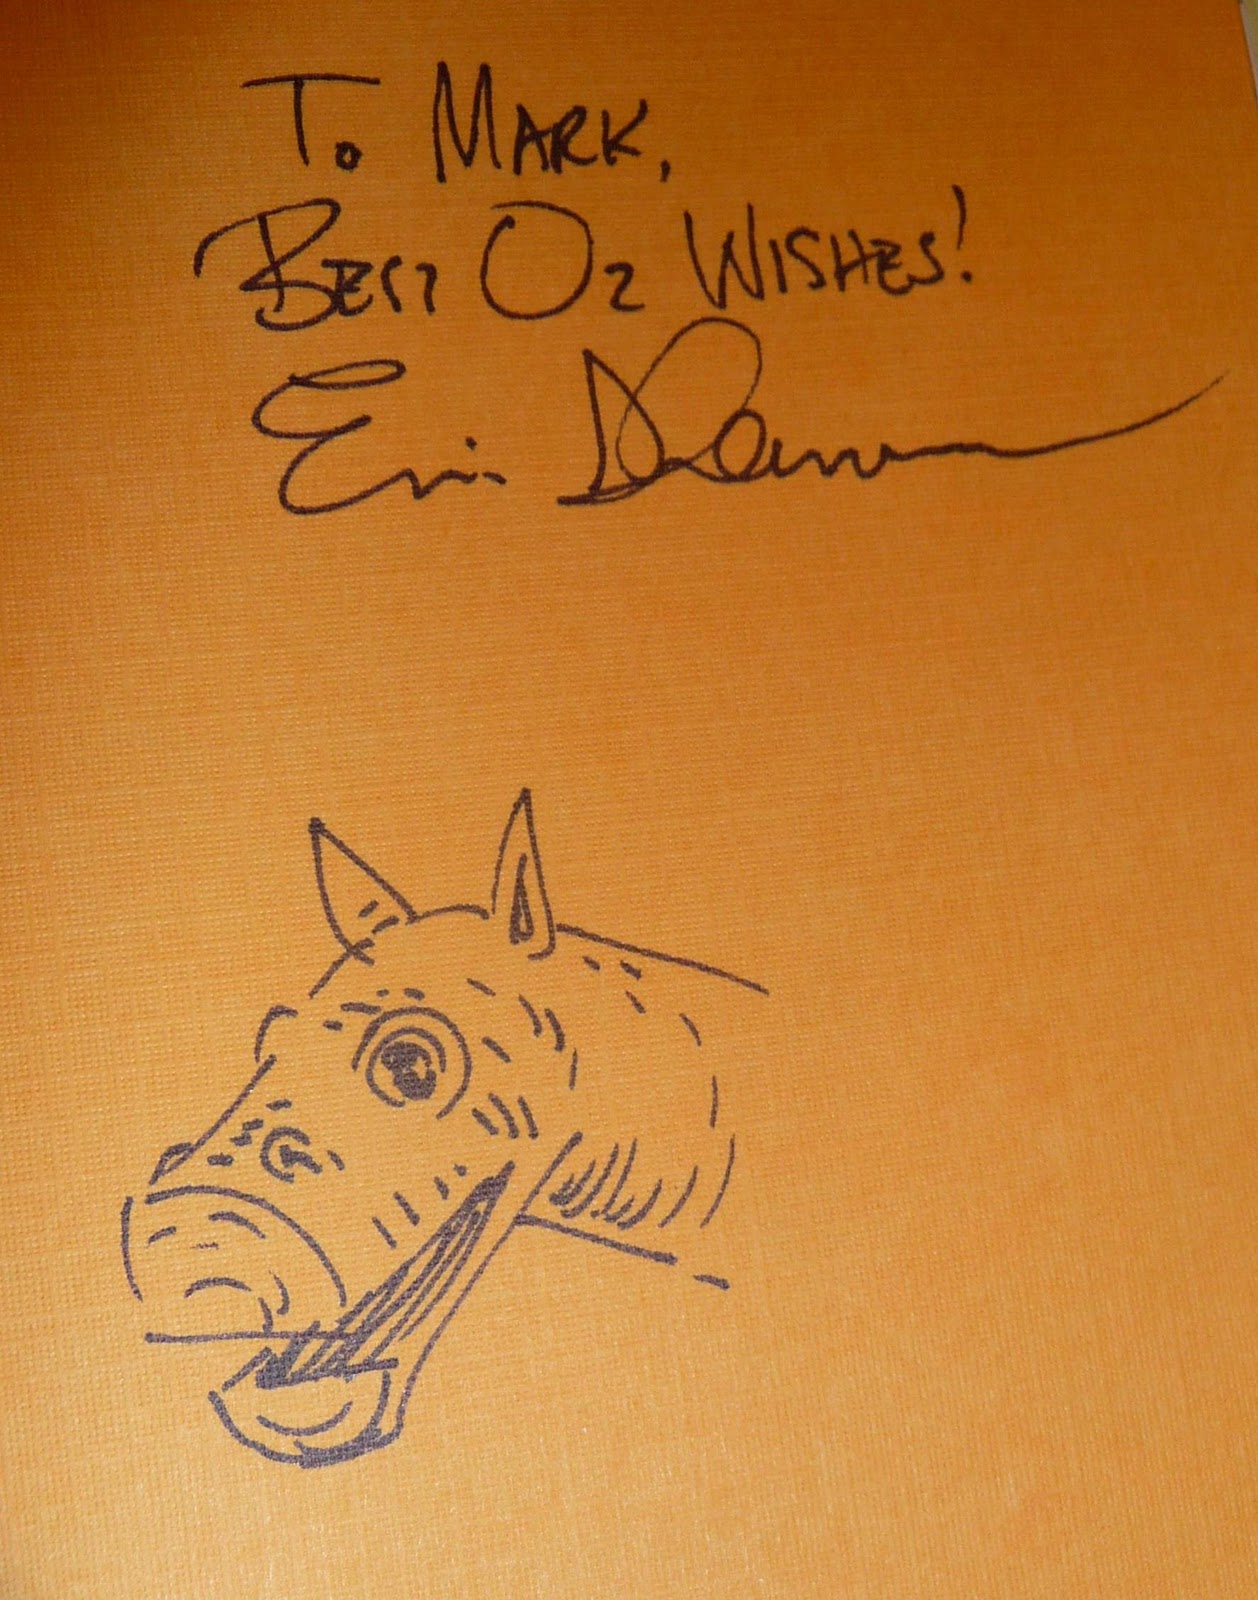 To Mark,
Best Oz Wishes!
Eric